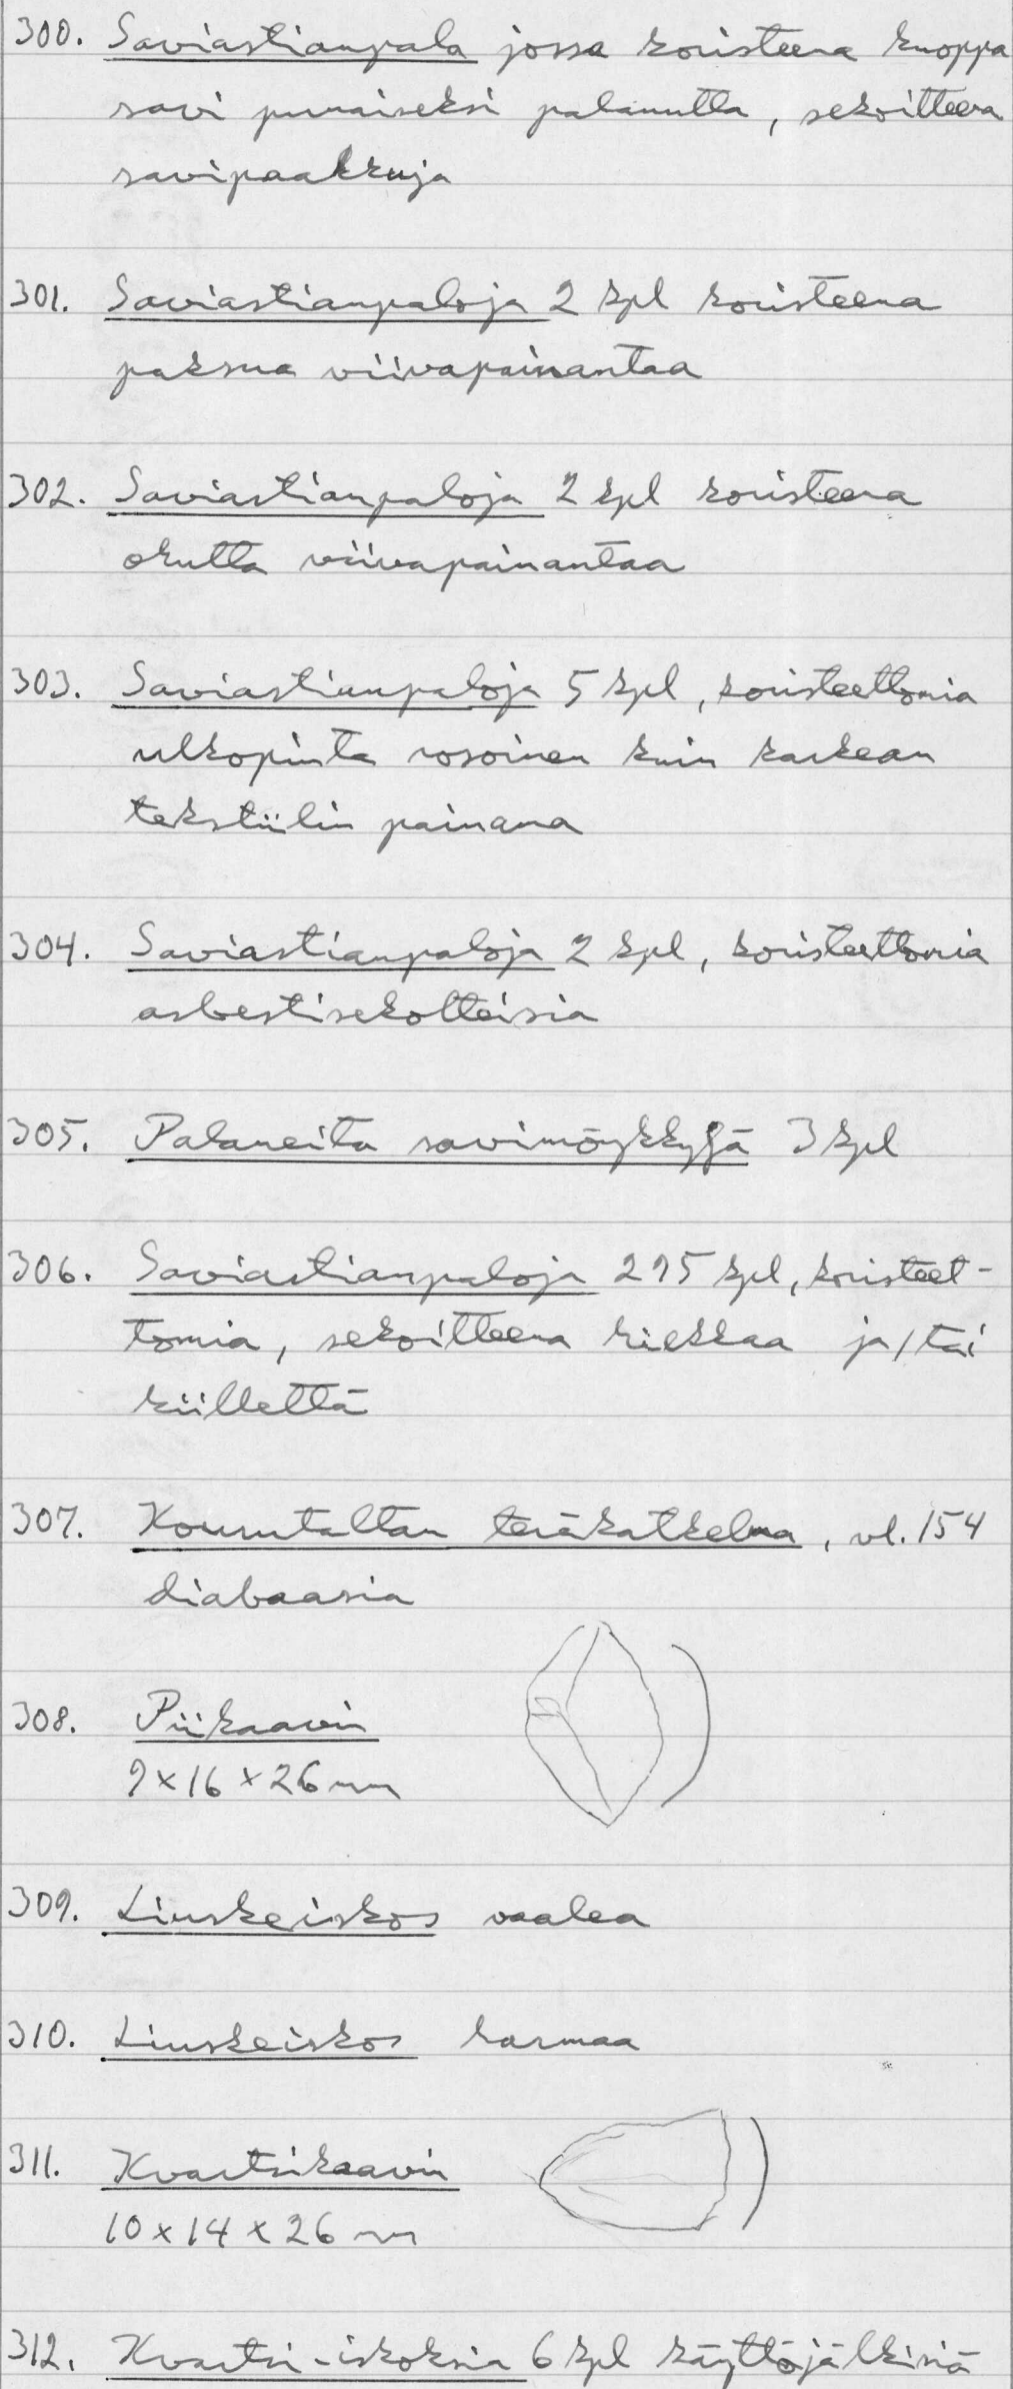 300. Saviastianpala jossa koristeena kuoppa
savi punaiseksi palanutta, sekoitteena
savipaakkuja
301. Saviastianpaloja 2 kpl koristeena
paksua viivapainantaa
302. Saviastianpaloja 2 kpl koristeena
ohutta viivapainantaa
303. Saviastianpaloja 5 kpl, koristeettomia
ulkopinta rosoinen kuin karkean
tekstiilin painama
304. Saviastianpaloja 2 kpl, koristeettomia
asbestisekoitteisia
305. Palaneita savimöykkyjä 3 kpl
306. Saviastianpaloja 295 kpl, koristeet-
tomia, sekoitteena hiekkaa ja/tai
kiillettä
307. Kourutaltan teräkatkelma, vl. 154
diabaasia
308. Piikaavin
9 x 16 x 26 mm
309. Liuskeiskos vaalea
310. Liuskeiskos harmaa
311. Kvartsikaavin
10 x 14 x 26 mm
312. Kvartsi-iskoksia 6 kpl käyttöjälkisiä